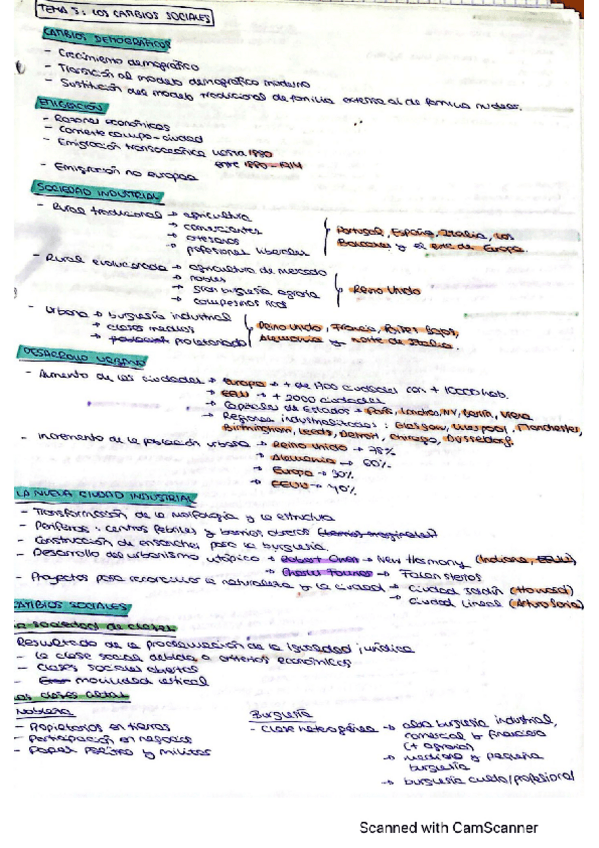 TEMA 5: LOS CAMBIOS SOCIALES
CAMBIOS DEMOGRÁFICOS
- Crecimiento demográfico
- Transición al modelo demográfico moderno
- Sustitución del modelo tradicional de familia extensa al de familia nuclear.
EMIGRACIÓN
- Razones económicas
- Corriente campo-ciudad
- Emigración transoceánica hasta 1880
entre 1880-1914
- Emigración no europea
SOCIEDAD INDUSTRIAL
- Rural tradicional → agricultura
→ comerciantes
→ artesanos
→ profesiones liberales
Portugal, España, Italia, los
Balcanes y el este de Europa.
- Rural evolucionada → agricultura de mercado
→ nobles
→ gran burguesía agraria
→ campesinos ricos
Reino Unido
- Urbana → burguesía industrial
→ clases medias
→ proletariado
Reino Unido, Francia, Países Bajos,
Alemania y norte de Italia.
DESARROLLO URBANO
- Aumento de las ciudades → Europa → + de 1700 ciudades con + 10000 hab.
→ EEUU → + 2000 ciudades
→ Capitales de Estados → París, Londres, NY, Berlín, Viena
→ Regiones industrializadas: Glasgow, Liverpool, Manchester,
Birmingham, Leeds, Detroit, Chicago, Düsseldorf.
- Incremento de la población urbana → Reino Unido → 78%
→ Alemania → 60%
→ Europa → 30%
→ EEUU → 40%
LA NUEVA CIUDAD INDUSTRIAL
- Transformación de la morfología y la estructura
- Periferias: centros fabriles y barrios obreros (barrios marginales)
- Construcción de ensanches para la burguesía.
- Desarrollo del urbanismo utópico → Robert Owen → New Harmony (Indiana, EEUU)
→ Charles Fourier → Falansterios
- Proyectos para reconciliar la naturaleza y la ciudad → Ciudad Jardín (Howard)
→ Ciudad Lineal (Arturo Soria)
CAMBIOS SOCIALES
La sociedad de clases
Resultado de la proclamación de la igualdad jurídica
- La clase social debida a criterios económicos
- Clases sociales abiertas
- movilidad vertical
Las clases altas
Nobleza
- Propietarios en tierras
- Participación en negocios
- Papel político y militar
Burguesía
- Clase heterogénea → alta burguesía industrial,
comercial y financiera
(+ agraria)
→ mediana y pequeña
burguesía
→ burguesía culta/profesional
Scanned with CamScanner